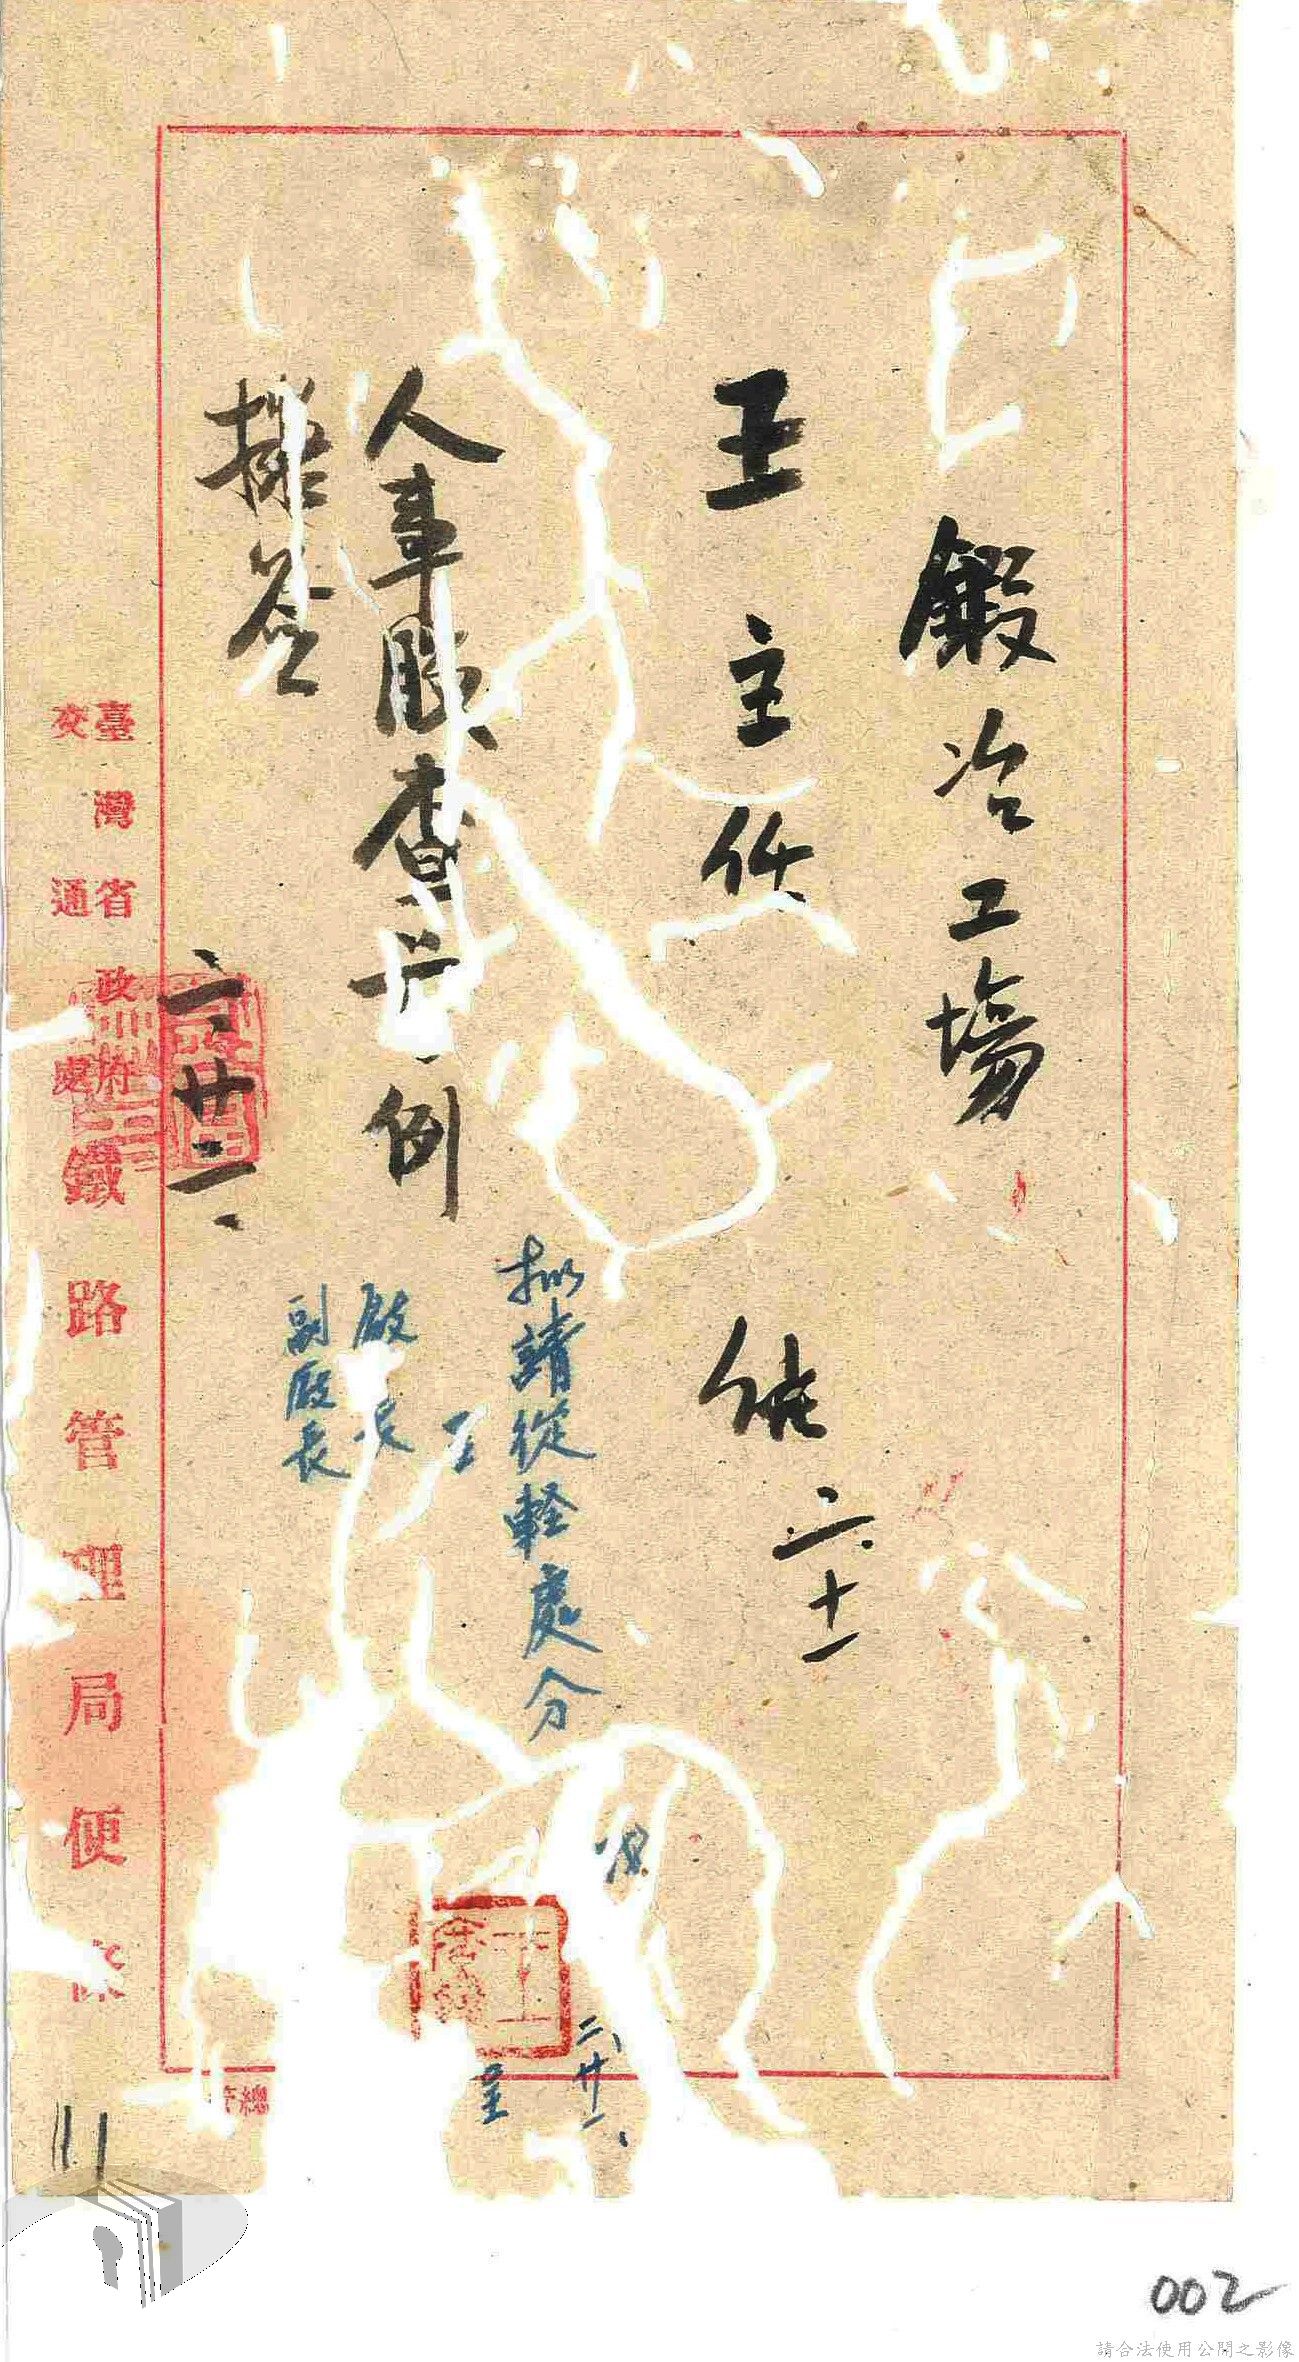 鍛冶工場
王主任
二、十一
擬請從輕處分
呈
廠長
副廠長
二、廿一、
呈
人事股查 例
擬簽
二、廿二、
臺灣省政府
交通處
鐵路管理局便條
總
002
請合法使用公開之影像